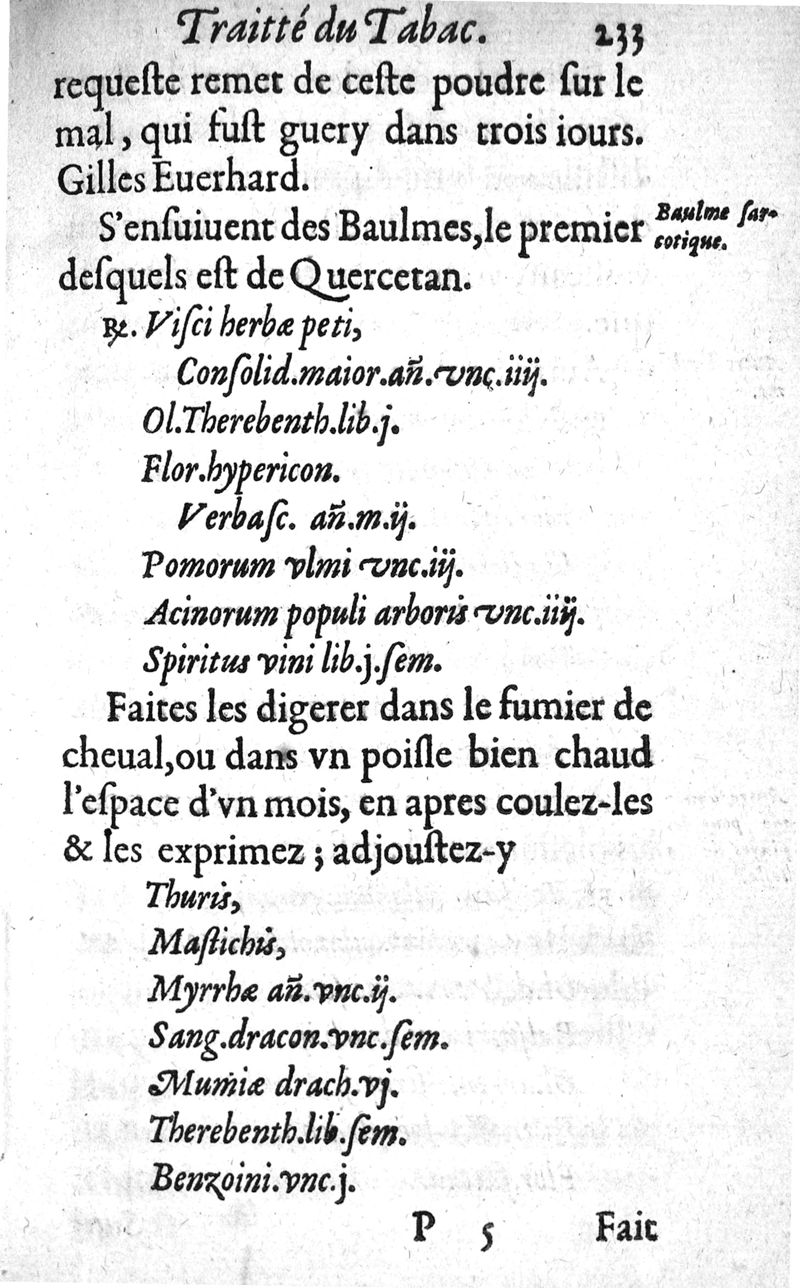 Traitté du Tabac. 233
requeſte remet de ceſte poudre ſur le
mal, qui fuſt guery dans trois iours.
Gilles Euerhard.
S'enſuiuent des Baulmes, le premier
Baulme ſar-
cotique.
deſquels eſt de Quercetan.
℞. Viſci herbæ peti,
Conſolid. maior. añ. vnc. iiij.
Ol. Therebenth. lib. j.
Flor. hypericon.
Verbaſc. añ. m. ij.
Pomorum vlmi vnc. iij.
Acinorum populi arboris vnc. iiij.
Spiritus vini lib. j. ſem.
Faites les digerer dans le fumier de
cheual, ou dans vn poiſle bien chaud
l'eſpace d'vn mois, en apres coulez-les
& les exprimez ; adjouſtez-y
Thuris,
Maſtichis,
Myrrhæ añ. vnc. ij.
Sang. dracon. vnc. ſem.
Mumiæ drach. vj.
Therebenth. lib. ſem.
Benzoini. vnc. j.
P 5 Fait